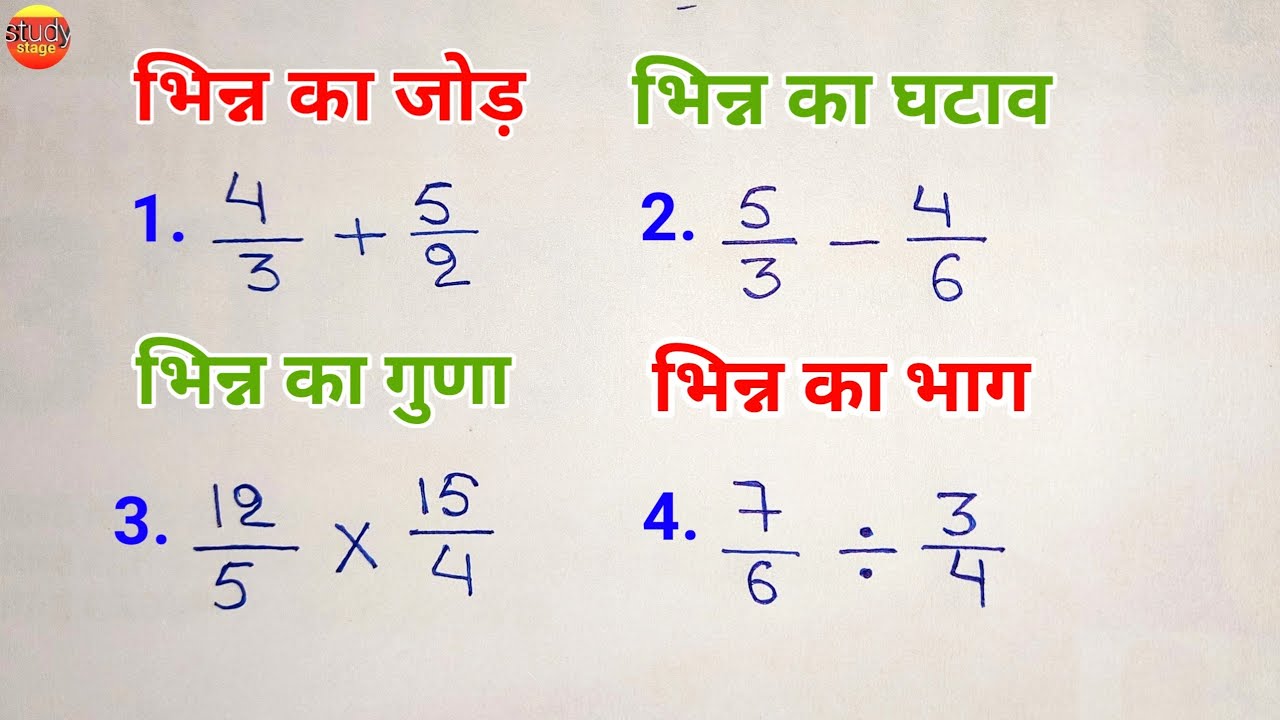 study
stage
भिन्न का जोड़
1. 4/3 + 5/2
भिन्न का घटाव
2. 5/3 − 4/6
भिन्न का गुणा
3. 12/5 × 15/4
भिन्न का भाग
4. 7/6 ÷ 3/4